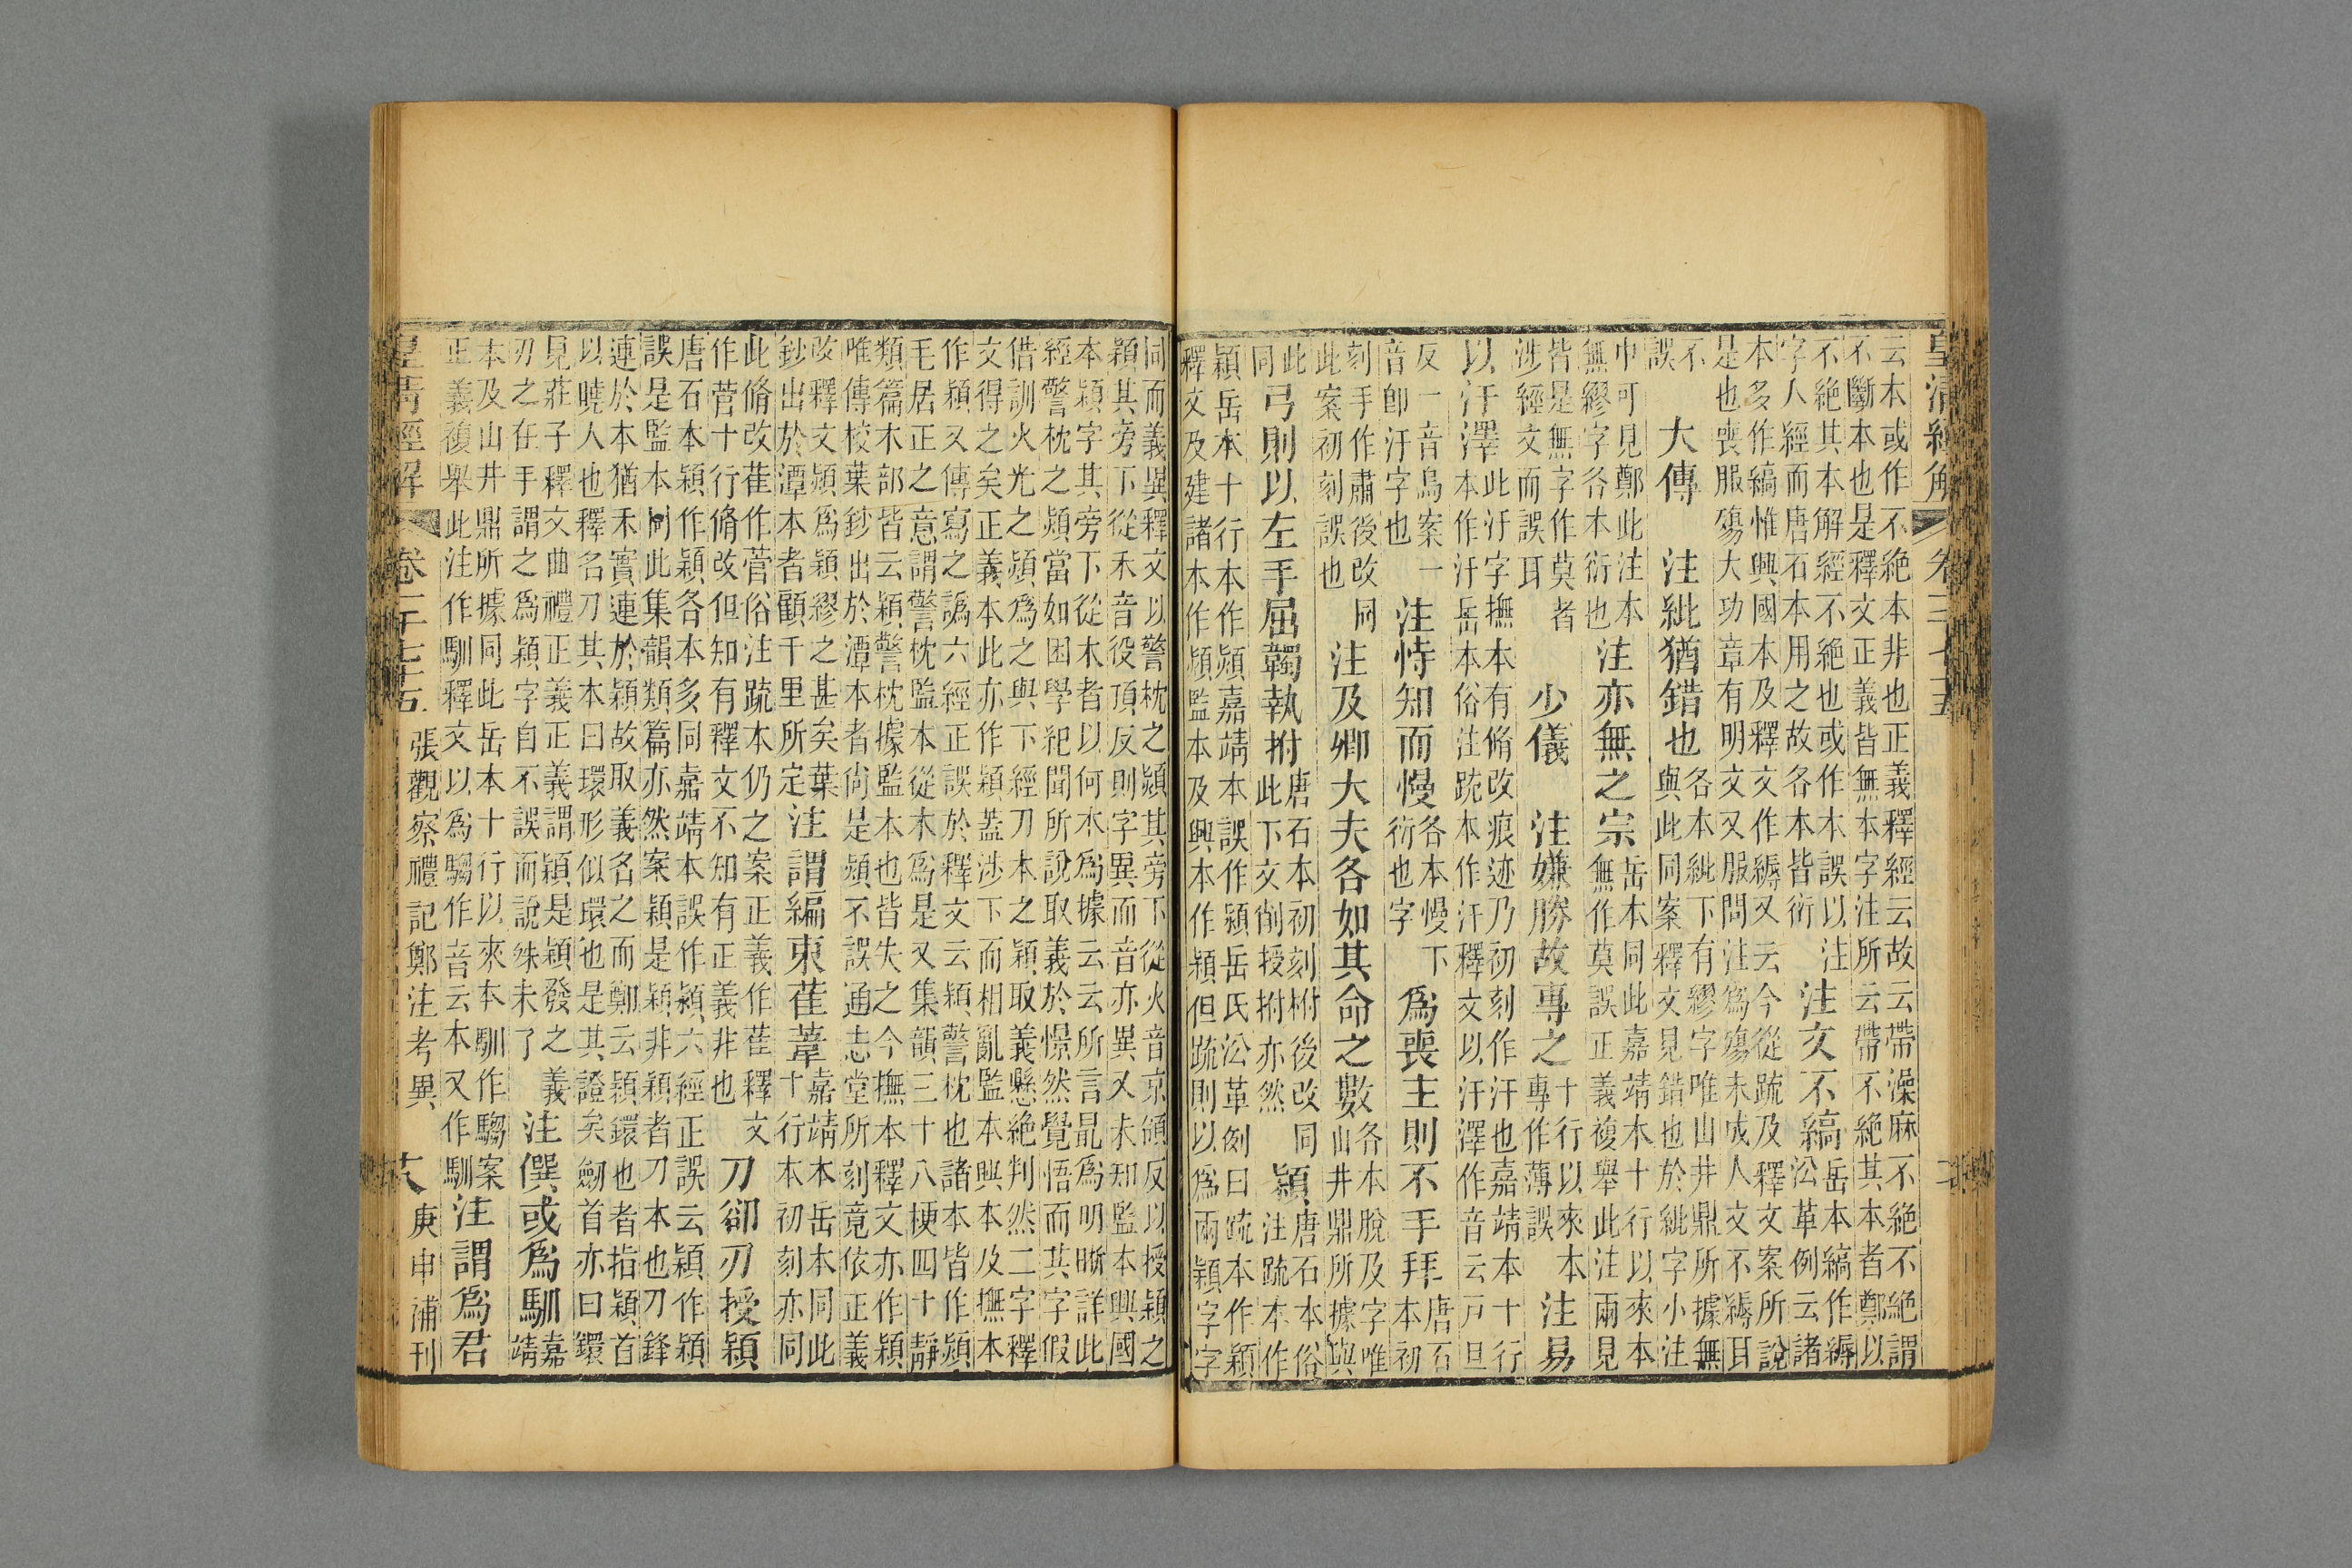 皇清經解 卷
云本或作不絕本非也正義釋經云故云帶澡麻不絕不絕謂
不斷本也是釋文正義皆無本字注所云帶不絕其本者鄭以
不絕其本解經不絕也或作本誤以注
字人經而唐石本用之故各本皆衍
注文不縞
岳本縞作縟
沿革例云諸
本多作縞惟興國本及釋文作縟又云今從疏及釋文案所說
是也喪服殤大功章有明文又服問注爲殤未成人文不縟耳
不
誤
大傳 注紕猶錯也
各本紕下有繆字唯山井鼎所據無
與此同案釋文見錯也於紕字小注
中可見鄭此注本
無繆字各本衍也
注亦無之宗
岳本同此嘉靖本十行以來本
無作莫誤正義複舉此注兩見
皆是無字作莫者
涉經文而誤耳
少儀 注嫌勝故專之
十行以來本
專作薄誤
注易
以汙澤
此汙字撫本有脩改痕迹乃初刻作汗也嘉靖本十行
本作汙岳本俗注疏本作汗釋文以汗澤作音云戸旦
反一音烏案一
音卽汙字也
注恃知而慢
各本慢下
衍也字
爲喪主則不手拜
唐石
本初
刻手作肅後改同
此案初刻誤也
注及卿大夫各如其命之數
各本脫及字唯
山井鼎所據與
此
同
弓則以左手屈韣執拊
唐石本初刻柎後改同
此下文削授拊亦然
穎
唐石本俗
注疏本作
潁岳本十行本作熲嘉靖本誤作潁岳氏沿革例曰疏本作穎
釋文及建諸本作熲監本及興本作穎但疏則以爲兩穎字字
同而義異釋文以警枕之熲其旁下從火音京頒反以授穎之
穎其旁下從禾音役頂反則字異而音亦異又未知監本興國
本穎字其旁下從木者以何本爲據云云所言最爲明晰詳此
經警枕之熲當如困學紀聞所說取義於憬然覺悟而其字假
借訓火光之熲爲之與下經刀本之穎取義懸絕判然二字釋
文得之矣正義本此亦作穎蓋涉下而相亂監本興本及撫本
作穎又傳寫之譌六經正誤於釋文云穎警枕也諸本皆作熲
毛居正之意謂警枕監本從木爲是又集韻三十八梗四十靜
類篇木部皆云穎警枕據監本也皆失之今撫本釋文亦作穎
唯傳校葉鈔出於潭本者尙是熲不誤通志堂所刻竟依正義
改釋文熲爲穎繆之甚矣葉
鈔出於潭本者顧千里所定
注謂編束萑葦
嘉靖本岳本同此
十行本初刻亦同
此脩改萑作菅俗注疏本仍之案正義作萑釋文
作菅十行脩改但知有釋文不知有正義非也
刀卻刃授穎
唐石本穎作穎各本多同嘉靖本誤作潁六經正誤云穎作穎
誤是監本同此集韻類篇亦然案穎是穎非穎者刀本也刀鋒
連於本猶禾實連於穎故取義名之而鄭云穎鐶也者指穎首
以曉人也釋名刀其本曰環形似環也是其證矣劒首亦曰鐶
見莊子釋文曲禮正義正義謂穎是穎發之義
刃之在手謂之爲穎字自不誤而說殊未了
注僎或爲馴
嘉
靖
本及山井鼎所據同此岳本十行以來本馴作騶案
正義複舉此注作馴釋文以爲騶作音云本又作馴
注謂爲君
皇清經解 卷一千七十五 張觀察禮記鄭注考異 庚申補刊